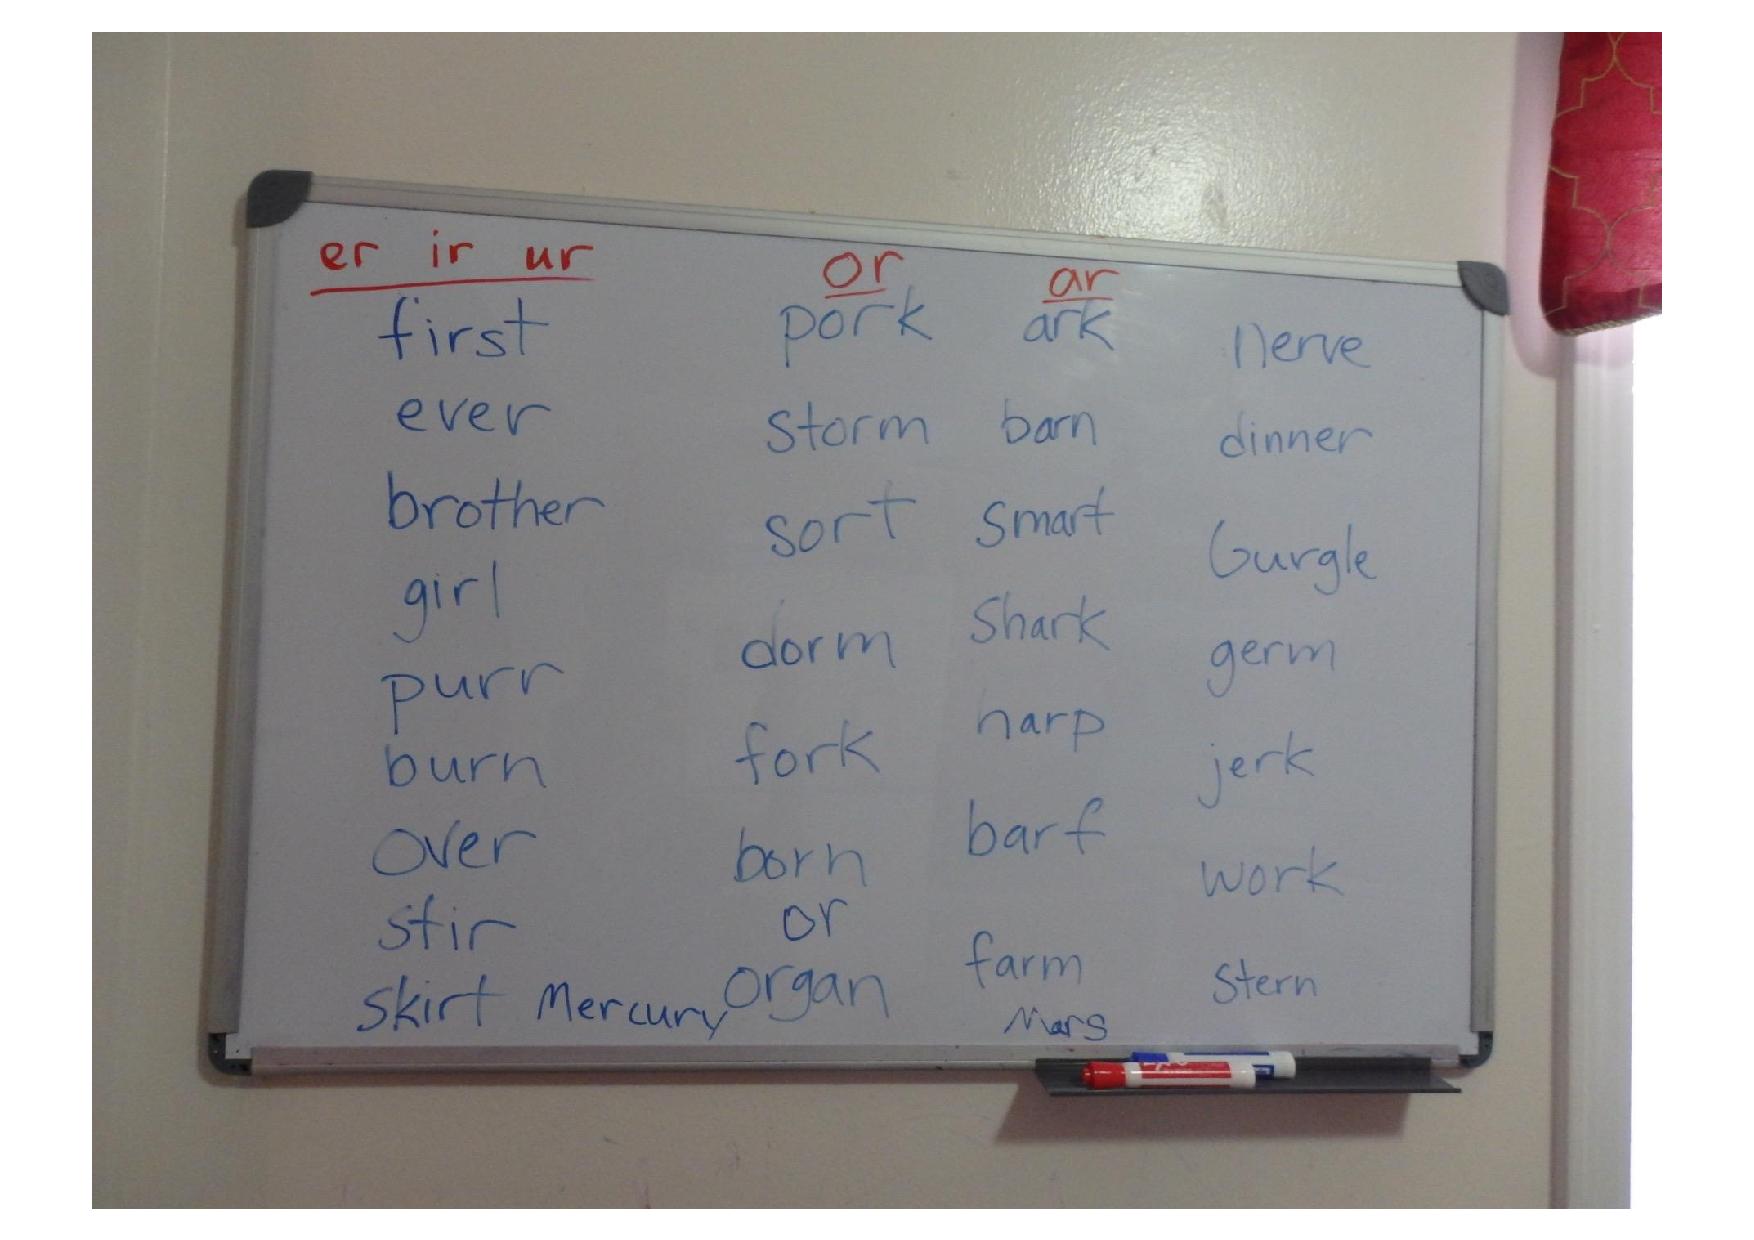 er ir ur
first
ever
brother
girl
purr
burn
over
stir
skirt Mercury
or
pork
storm
sort
dorm
fork
born
or
organ
ar
ark
barn
smart
Shark
harp
barf
farm
Mars
nerve
dinner
Gurgle
germ
jerk
work
Stern